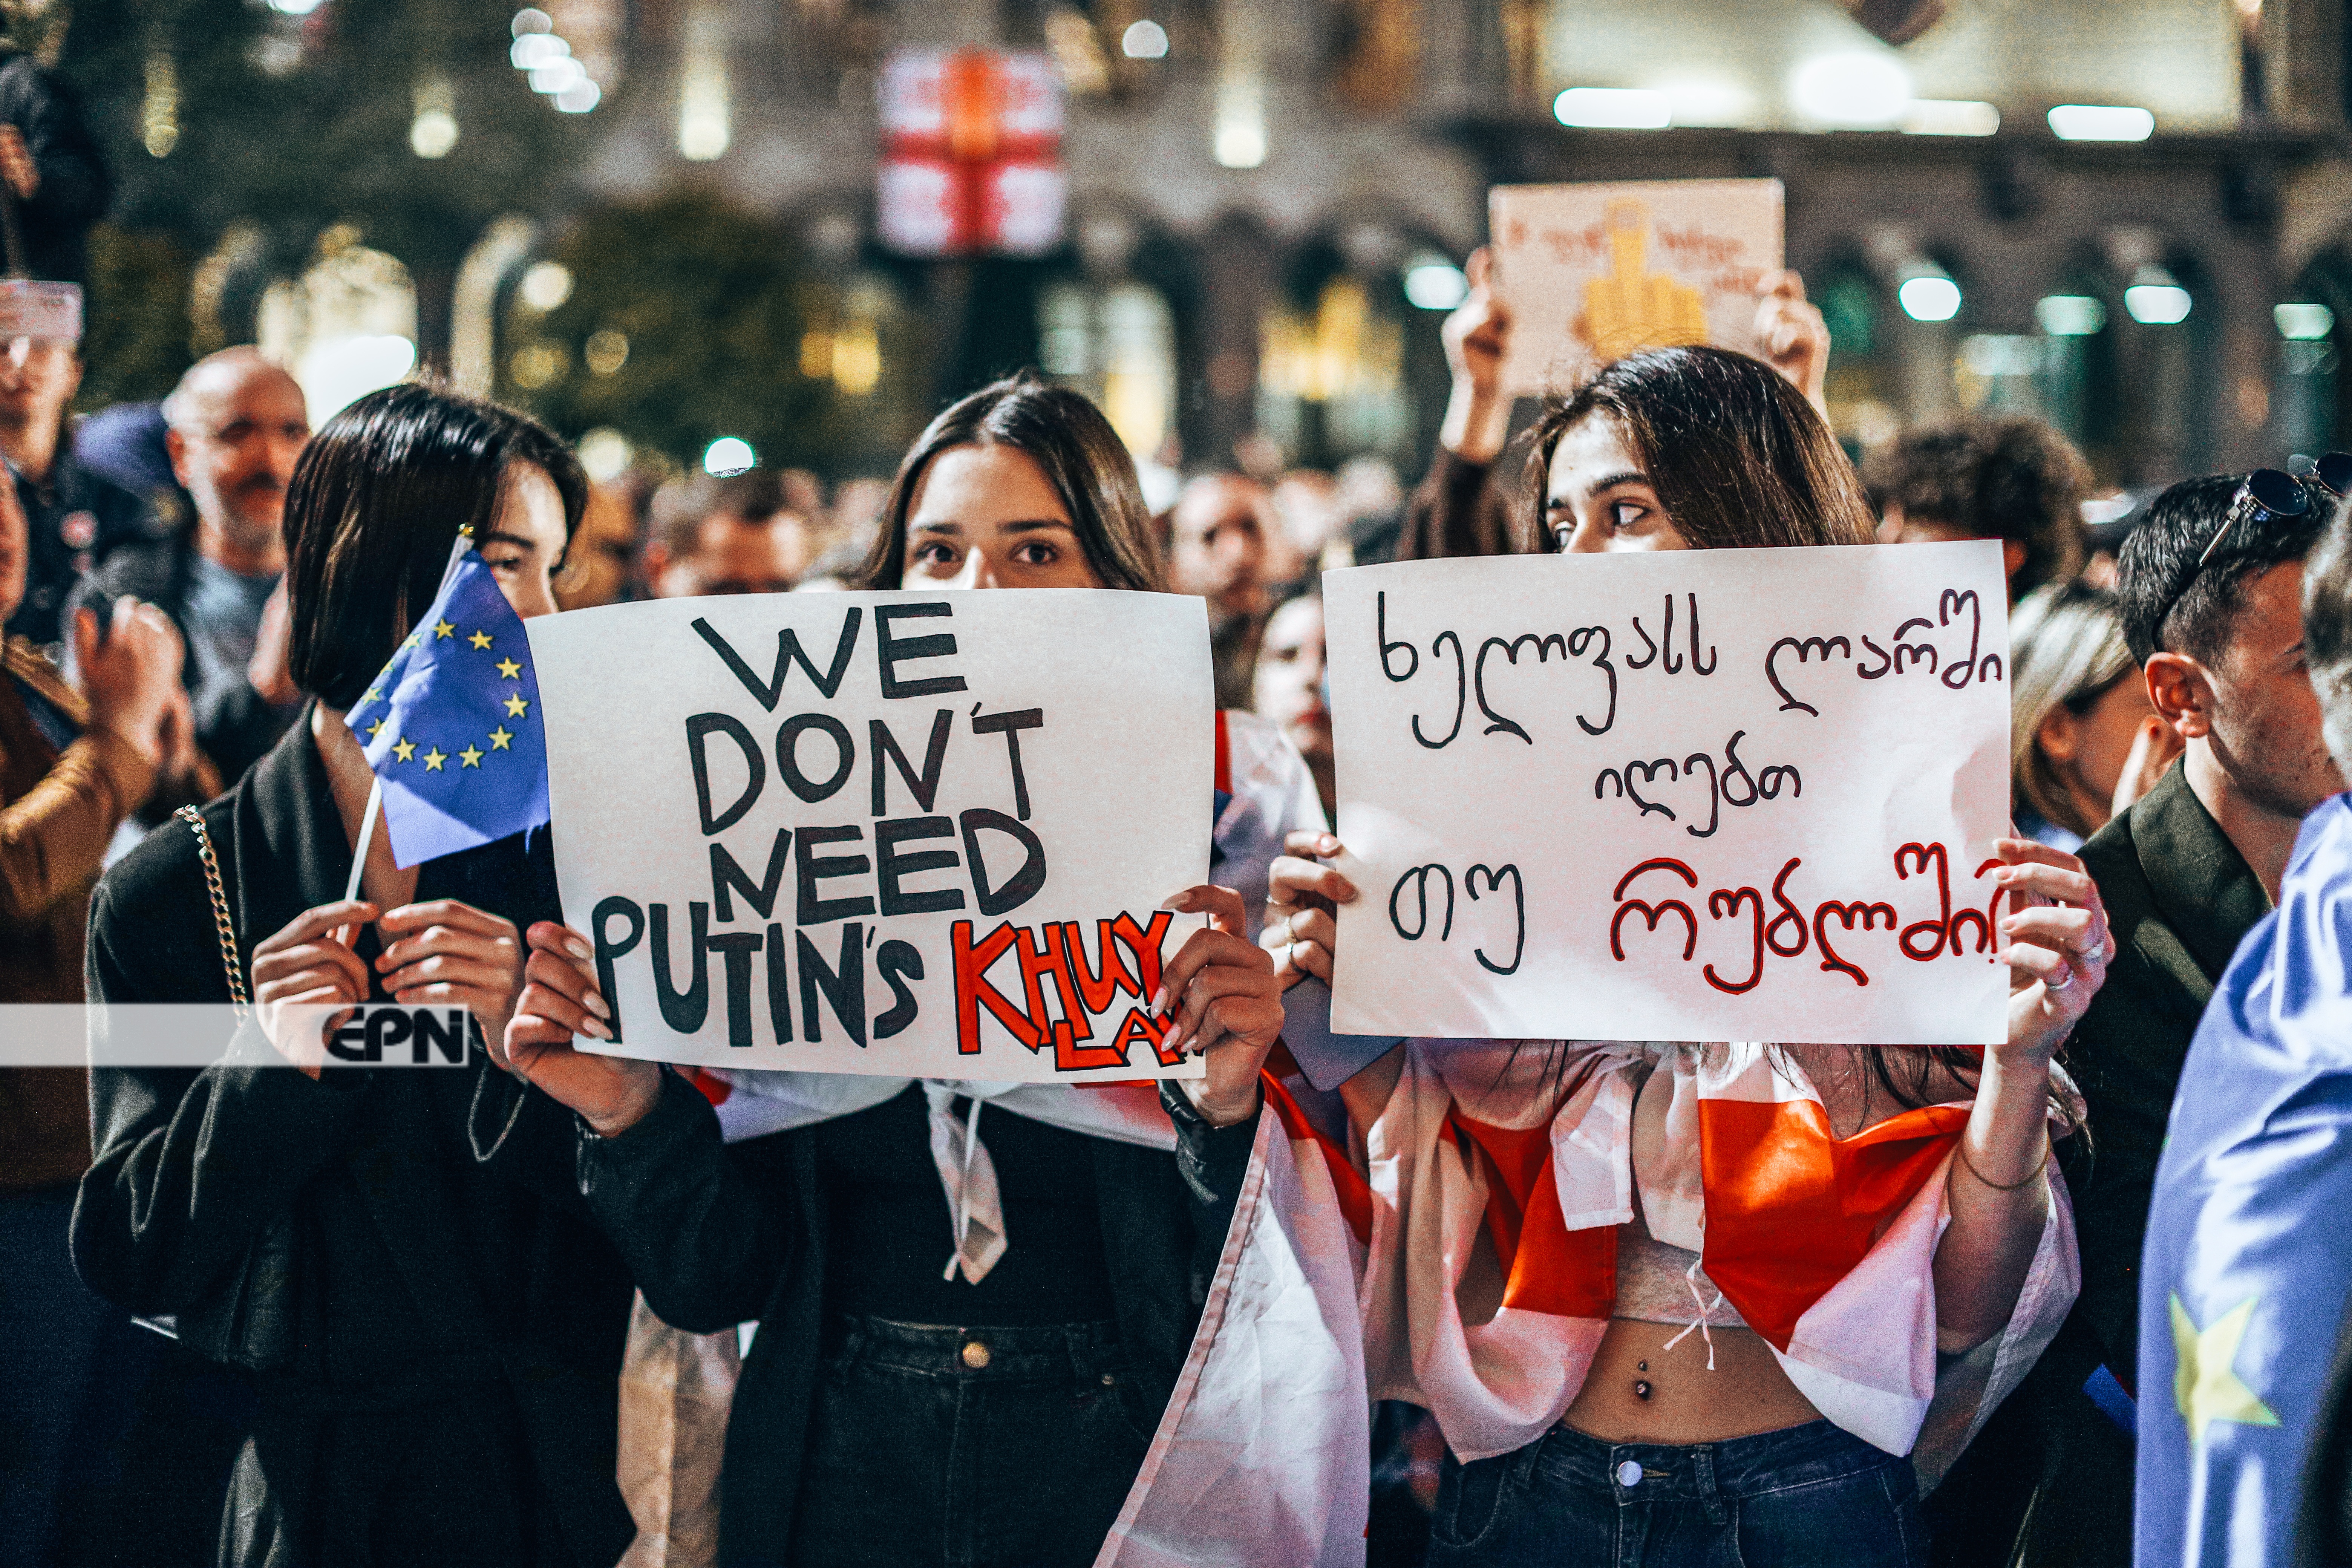 WE
DON'T
NEED
PUTIN'S KHUY
LA
ხელფასს ლარში
იღებთ
თუ რუბლში
EPN